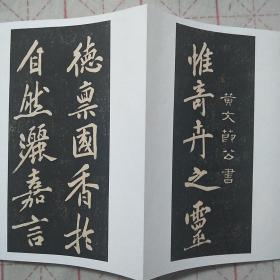 黄文節公書
惟奇卉之靈
德禀國香於
自然灑嘉言